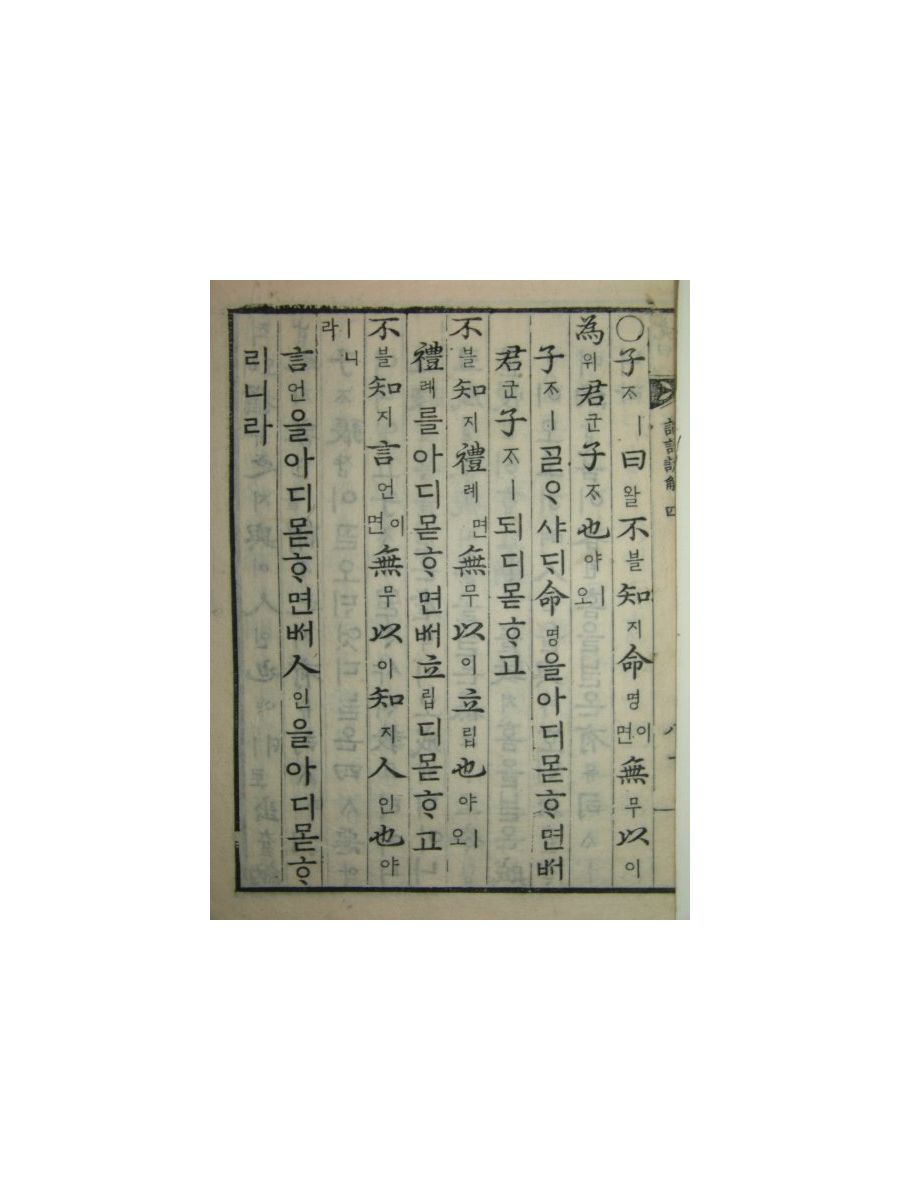 論語諺解 四
○子ᄌᆞㅣ曰왈不블知지命명이면無무以이
爲위君군子ᄌᆞ也야ㅣ오
子ᄌᆞㅣᄀᆞᆯᄋᆞ샤ᄃᆡ命명을아디몯ᄒᆞ면ᄡᅥ
君군子ᄌᆞㅣ되디몯ᄒᆞ고
不블知지禮례면無무以이立립也야ㅣ오
禮례를아디몯ᄒᆞ면ᄡᅥ立립디몯ᄒᆞ고
不블知지言언이면無무以이知지人인也야
ㅣ니라
言언을아디몯ᄒᆞ면ᄡᅥ人인을아디몯ᄒᆞ
리니라